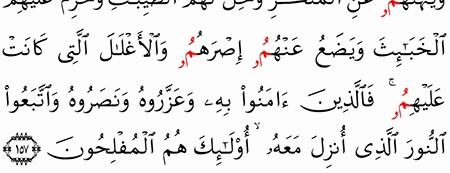 وَيَنْهَىٰهُمُۥ عَنِ الْمُنكَرِ وَيُحِلُّ لَهُمُ الطَّيِّبَٰتِ وَيُحَرِّمُ عَلَيْهِمُ
الْخَبَٰٓئِثَ وَيَضَعُ عَنْهُمُۥٓ إِصْرَهُمُۥ وَالْأَغْلَٰلَ الَّتِى كَانَتْ
عَلَيْهِمُۥ ۚ فَالَّذِينَ ءَامَنُوا۟ بِهِۦ وَعَزَّرُوهُ وَنَصَرُوهُ وَاتَّبَعُوا۟
النُّورَ الَّذِىٓ أُنزِلَ مَعَهُۥٓ ۙ أُو۟لَٰٓئِكَ هُمُ الْمُفْلِحُونَ ١٥٧